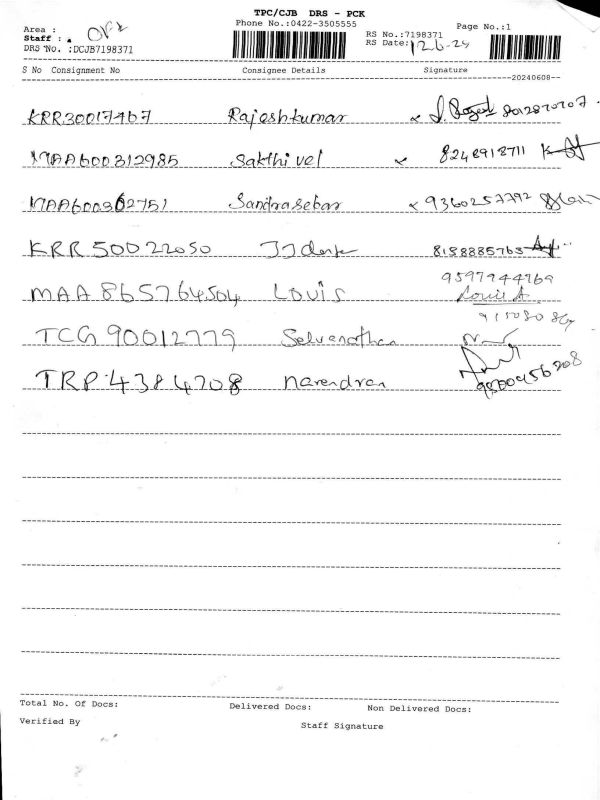 TPC/CJB DRS - PCK
Phone No.:0422-3505555
Page No.:1
Area :
Staff :
DRS No. :DCJB7198371
RS No.:7198371
RS Date: 12-6-24
S No Consignment No Consignee Details Signature
20240608
KRR30017467 Rajeshkumar 8012870707
MAA600312985 Sakthivel 8248918711
MAA600362751 Sandrasebar 9360257792
KRR50022050 8158885765
9597944769
MAA865764504 Louis Louis A
TCG90012779 Selvanathan
TRP4384708 Narendran 9800456208
Total No. Of Docs: Delivered Docs: Non Delivered Docs:
Verified By Staff Signature